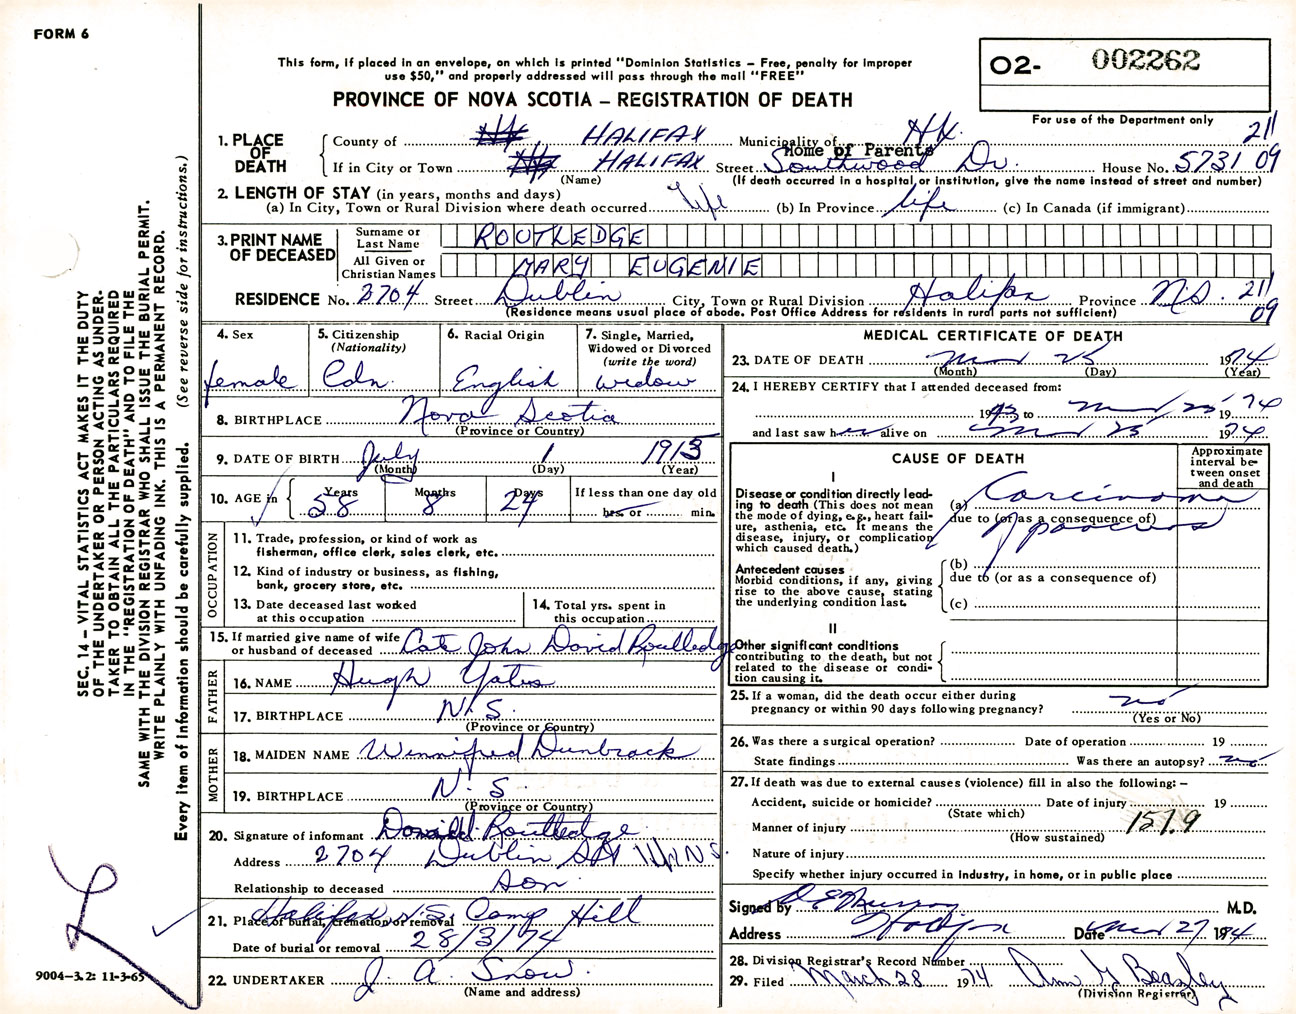 FORM 6
This form, if placed in an envelope, on which is printed "Dominion Statistics – Free, penalty for improper
use $50," and properly addressed will pass through the mail "FREE"
PROVINCE OF NOVA SCOTIA – REGISTRATION OF DEATH
02- 002262
For use of the Department only
211
09
1. PLACE OF DEATH
County of HALIFAX Municipality of Hx.
Home of Parents
If in City or Town HALIFAX Street Southwood Dr. House No. 5731
(Name) (If death occurred in a hospital or institution, give the name instead of street and number)
2. LENGTH OF STAY (in years, months and days)
(a) In City, Town or Rural Division where death occurred life (b) In Province life (c) In Canada (if immigrant)
3. PRINT NAME OF DECEASED
Surname or Last Name ROUTLEDGE
All Given or Christian Names MARY EUGENIE
RESIDENCE No. 2704 Street Dublin City, Town or Rural Division Halifax Province N.S. 211
(Residence means usual place of abode. Post Office Address for residents in rural parts not sufficient) 09
4. Sex female
5. Citizenship (Nationality) Cdn.
6. Racial Origin English
7. Single, Married, Widowed or Divorced (write the word) widow
8. BIRTHPLACE Nova Scotia
(Province or Country)
9. DATE OF BIRTH July 1 1915
(Month) (Day) (Year)
10. AGE in Years 58 Months 8 Days 24 If less than one day old hrs. or min.
OCCUPATION
11. Trade, profession, or kind of work as
fisherman, office clerk, sales clerk, etc.
12. Kind of industry or business, as fishing,
bank, grocery store, etc.
13. Date deceased last worked
at this occupation
14. Total yrs. spent in
this occupation
15. If married give name of wife
or husband of deceased Late John David Routledge
FATHER
16. NAME Hugh Yates
17. BIRTHPLACE N.S.
(Province or Country)
MOTHER
18. MAIDEN NAME Winnifred Dunbrack
19. BIRTHPLACE N.S.
(Province or Country)
20. Signature of informant Donald Routledge
Address 2704 Dublin St Hx N.S.
Relationship to deceased son
21. Place of burial, cremation or removal Halifax N.S. Camp Hill
Date of burial or removal 28/3/74
22. UNDERTAKER J. A. Snow.
(Name and address)
MEDICAL CERTIFICATE OF DEATH
23. DATE OF DEATH Mar 25 1974
(Month) (Day) (Year)
24. I HEREBY CERTIFY that I attended deceased from:
19 to Mar 25 1974
and last saw her alive on Mar 25 1974
CAUSE OF DEATH
Approximate interval between onset and death
I
Disease or condition directly lead-
ing to death (This does not mean
the mode of dying, e.g., heart fail-
ure, asthenia, etc. It means the
disease, injury, or complication
which caused death.)
(a) Carcinoma
due to (or as a consequence of)
of pancreas
Antecedent causes
Morbid conditions, if any, giving
rise to the above cause, stating
the underlying condition last.
(b)
due to (or as a consequence of)
(c)
II
Other significant conditions
contributing to the death, but not
related to the disease or condi-
tion causing it.
25. If a woman, did the death occur either during
pregnancy or within 90 days following pregnancy? no
(Yes or No)
26. Was there a surgical operation? Date of operation 19
State findings Was there an autopsy? no
27. If death was due to external causes (violence) fill in also the following: –
Accident, suicide or homicide? Date of injury 19
(State which)
Manner of injury 157.9
(How sustained)
Nature of injury
Specify whether injury occurred in industry, in home, or in public place
Signed by D E Murray M.D.
Address Halifax Date Mar 27 1974
28. Division Registrar's Record Number
29. Filed March 28 1974 Ann G Beazley
(Division Registrar)
SEC. 14 – VITAL STATISTICS ACT MAKES IT THE DUTY
OF THE UNDERTAKER OR PERSON ACTING AS UNDER-
TAKER TO OBTAIN ALL THE PARTICULARS REQUIRED
IN THE "REGISTRATION OF DEATH" AND TO FILE THE
SAME WITH THE DIVISION REGISTRAR WHO SHALL ISSUE THE BURIAL PERMIT.
WRITE PLAINLY WITH UNFADING INK. THIS IS A PERMANENT RECORD.
Every item of information should be carefully supplied. (See reverse side for instructions.)
9004-3.2: 11-3-65